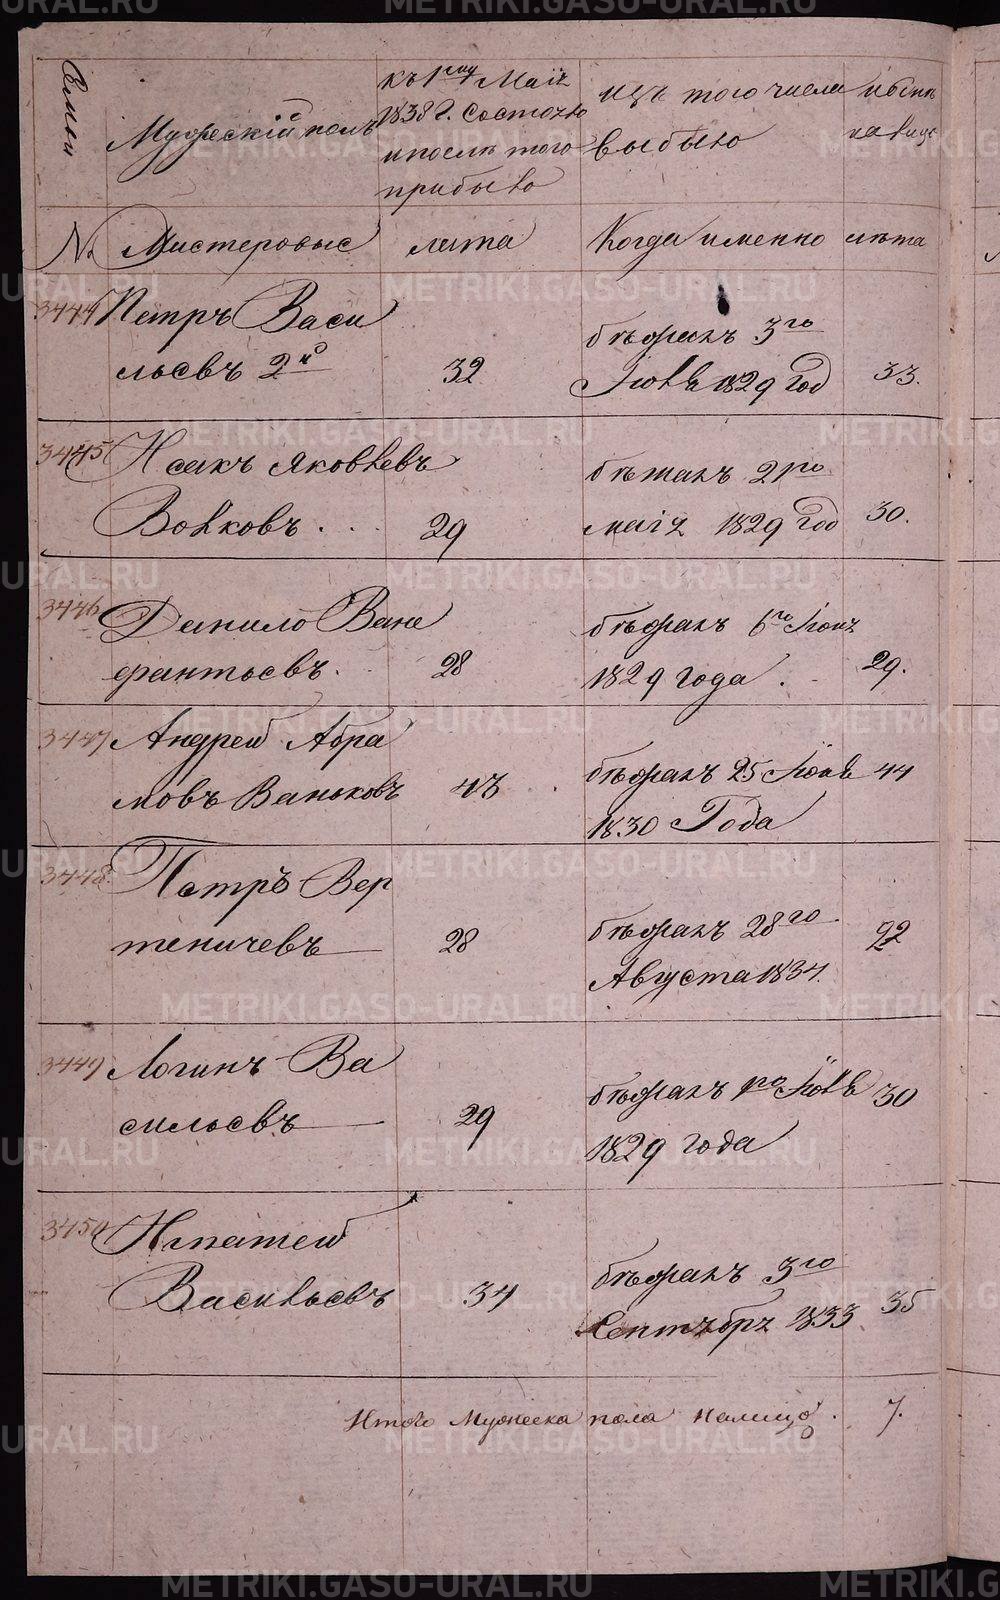 Семьи
Мужескій полъ
къ 1му Маія
1838 г. Состояло
и послѣ того
прибыло
изъ того числа
выбыло
нынѣ
на лицо
№ Мастеровые лѣта Когда именно лѣта
3444 Петръ Васи
льевъ 2й 32
бѣжалъ 3го
Іюля 1829 год 33.
3445 Исакъ Яковлевъ
Волковъ . . . 29
бѣжалъ 21го
маія 1829 год 30.
3446 Данило Ване
фантьевъ. 28
бѣжалъ 6го Іюня
1829 года . 29.
3447 Андрей Абра
мовъ Ваньковъ 43
бѣжалъ 25 Іюля 44
1830 Года
3448 Петръ Вер
теничевъ 28
бѣжалъ 28го
Августа 1834. 22
3449 Логинъ Ва
сильевъ 29
бѣжалъ 1го Іюля 30
1829 года
3450 Ипатей
Васильевъ 34
бѣжалъ 3го
Сентября 1833 35
Итого Мужеска пола налицо . 7.
METRIKI.GASO-URAL.RU